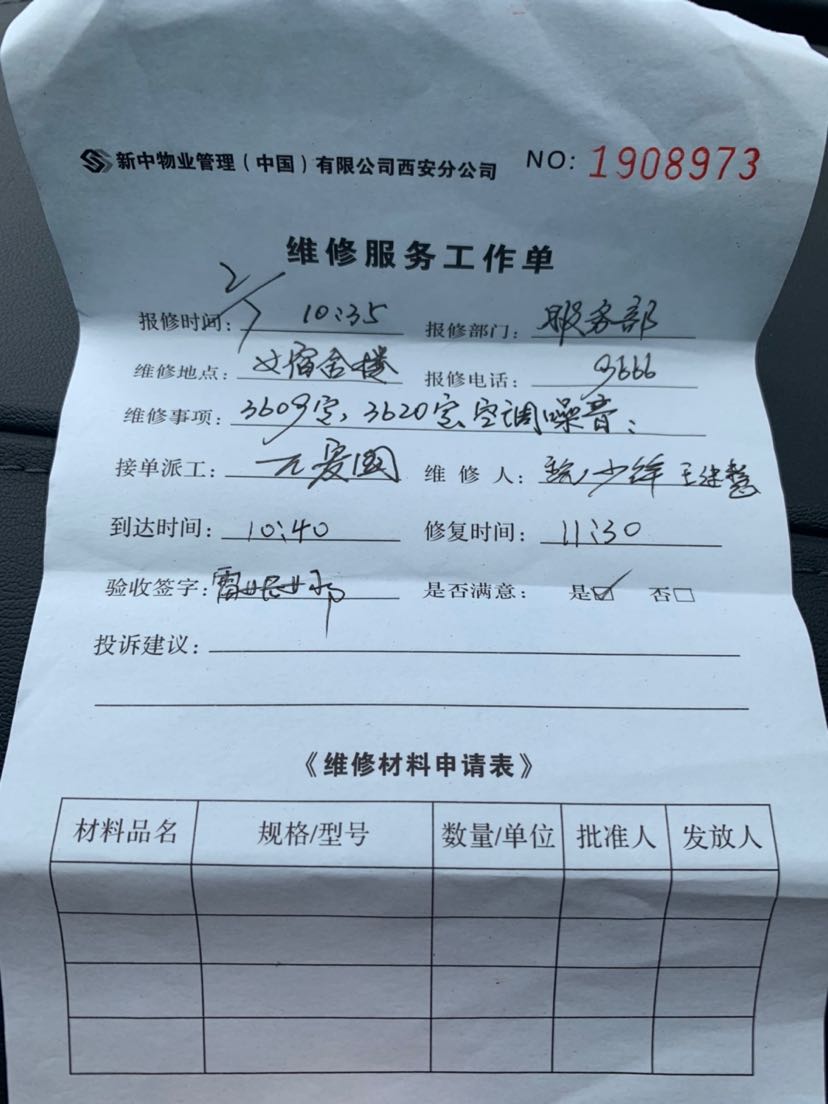 新中物业管理(中国)有限公司西安分公司 NO: 1908973
维修服务工作单
报修时间: 2/7 10:35 报修部门: 服务部
维修地点: 女宿舍楼 报修电话: 9666
维修事项: 3609室、3620室空调噪音;
接单派工: 元爱国 维修人:
到达时间: 10:40 修复时间: 11:30
验收签字: 是否满意: 是☑ 否□
投诉建议:
《维修材料申请表》
材料品名 规格/型号 数量/单位 批准人 发放人